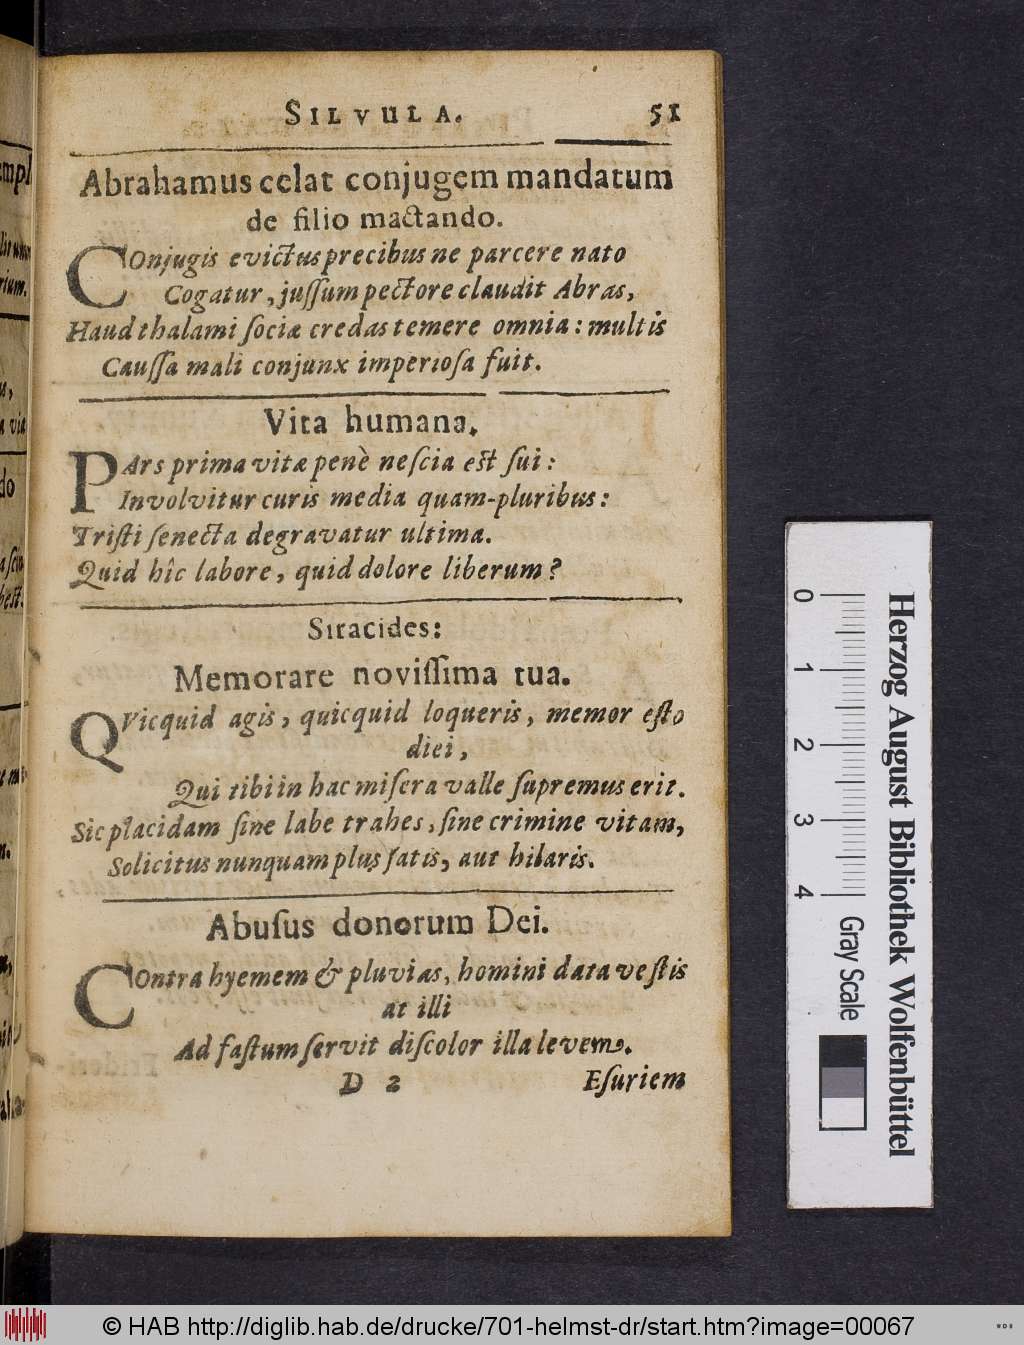 SILVULA. 51
Abrahamus celat conjugem mandatum
de filio mactando.
COnjugis evictus precibus ne parcere nato
Cogatur, juſſum pectore claudit Abras,
Haud thalami ſociæ credas temere omnia: multis
Cauſſa mali conjunx imperioſa fuit.
Vita humana.
PArs prima vitæ penè neſcia est ſui:
Involvitur curis media quam-pluribus:
Triſti ſenecta degravatur ultima.
Quid hîc labore, quid dolore liberum?
Siracides:
Memorare noviſſima tua.
QVicquid agis, quicquid loqueris, memor eſto
diei,
Qui tibi in hac miſera valle ſupremus erit.
Sic placidam ſine labe trahes, ſine crimine vitam,
Solicitus nunquam plus ſatis, aut hilaris.
Abuſus donorum Dei.
COntra hyemem & pluvias, homini data veſtis
at illi
Ad faſtum ſervit diſcolor illa levem.
D 2 Eſuriem
0 1 2 3 4
Gray Scale
Herzog August Bibliothek Wolfenbüttel
© HAB http://diglib.hab.de/drucke/701-helmst-dr/start.htm?image=00067